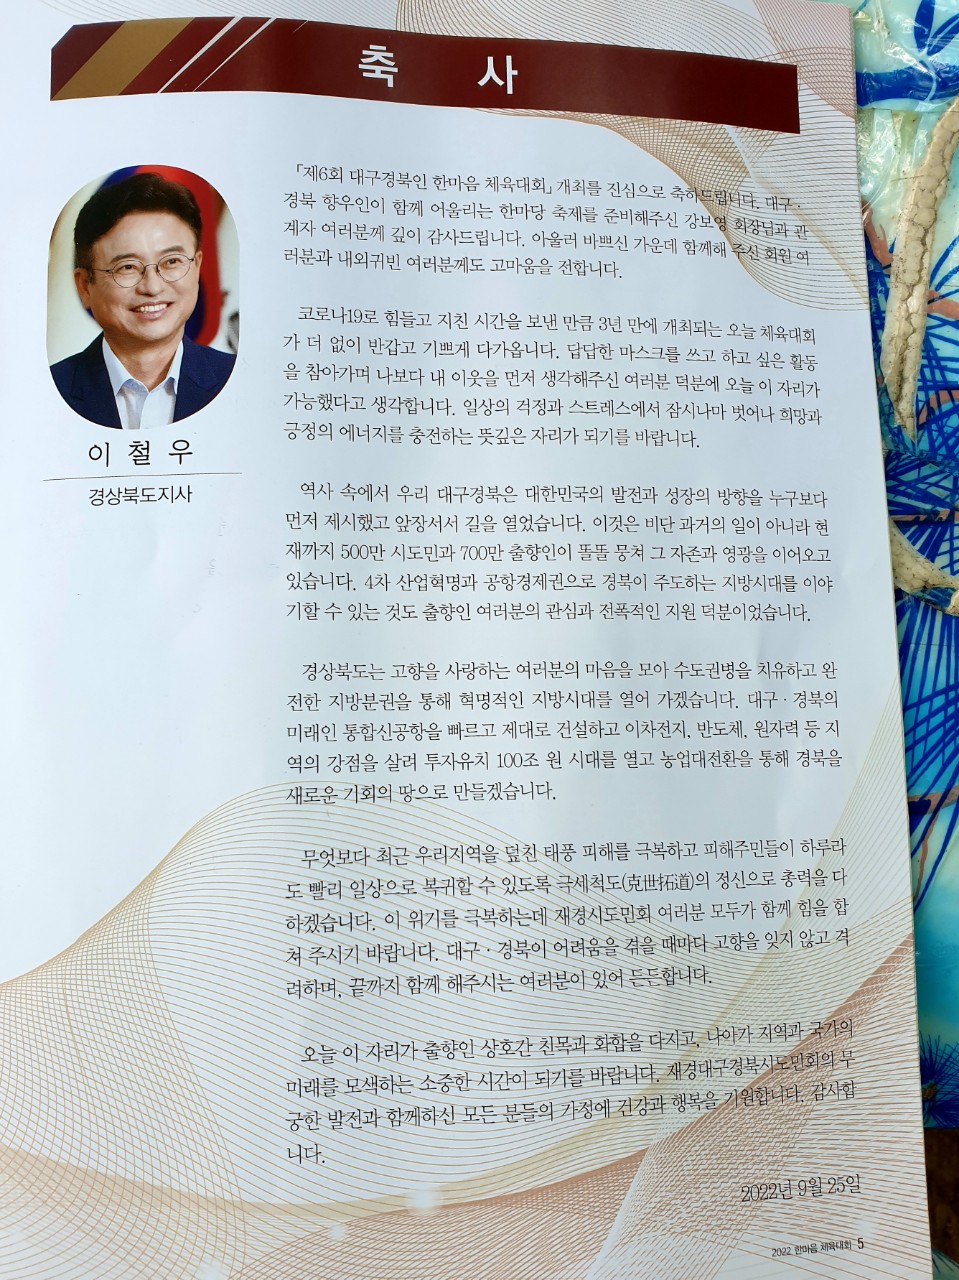 축 사
이 철 우
경상북도지사
「제6회 대구경북인 한마음 체육대회」 개최를 진심으로 축하드립니다. 대구·
경북 향우인이 함께 어울리는 한마당 축제를 준비해주신 강보영 회장님과 관
계자 여러분께 깊이 감사드립니다. 아울러 바쁘신 가운데 함께해 주신 회원 여
러분과 내외귀빈 여러분께도 고마움을 전합니다.
코로나19로 힘들고 지친 시간을 보낸 만큼 3년 만에 개최되는 오늘 체육대회
가 더 없이 반갑고 기쁘게 다가옵니다. 답답한 마스크를 쓰고 하고 싶은 활동
을 참아가며 나보다 내 이웃을 먼저 생각해주신 여러분 덕분에 오늘 이 자리가
가능했다고 생각합니다. 일상의 걱정과 스트레스에서 잠시나마 벗어나 희망과
긍정의 에너지를 충전하는 뜻깊은 자리가 되기를 바랍니다.
역사 속에서 우리 대구경북은 대한민국의 발전과 성장의 방향을 누구보다
먼저 제시했고 앞장서서 길을 열었습니다. 이것은 비단 과거의 일이 아니라 현
재까지 500만 시도민과 700만 출향인이 똘똘 뭉쳐 그 자존과 영광을 이어오고
있습니다. 4차 산업혁명과 공항경제권으로 경북이 주도하는 지방시대를 이야
기할 수 있는 것도 출향인 여러분의 관심과 전폭적인 지원 덕분이었습니다.
경상북도는 고향을 사랑하는 여러분의 마음을 모아 수도권병을 치유하고 완
전한 지방분권을 통해 혁명적인 지방시대를 열어 가겠습니다. 대구·경북의
미래인 통합신공항을 빠르고 제대로 건설하고 이차전지, 반도체, 원자력 등 지
역의 강점을 살려 투자유치 100조 원 시대를 열고 농업대전환을 통해 경북을
새로운 기회의 땅으로 만들겠습니다.
무엇보다 최근 우리지역을 덮친 태풍 피해를 극복하고 피해주민들이 하루라
도 빨리 일상으로 복귀할 수 있도록 극세척도(克世拓道)의 정신으로 총력을 다
하겠습니다. 이 위기를 극복하는데 재경시도민회 여러분 모두가 함께 힘을 합
쳐 주시기 바랍니다. 대구·경북이 어려움을 겪을 때마다 고향을 잊지 않고 격
려하며, 끝까지 함께 해주시는 여러분이 있어 든든합니다.
오늘 이 자리가 출향인 상호간 친목과 화합을 다지고, 나아가 지역과 국가의
미래를 모색하는 소중한 시간이 되기를 바랍니다. 재경대구경북시도민회의 무
궁한 발전과 함께하신 모든 분들의 가정에 건강과 행복을 기원합니다. 감사합
니다.
2022년 9월 25일
2022 한마음 체육대회 5